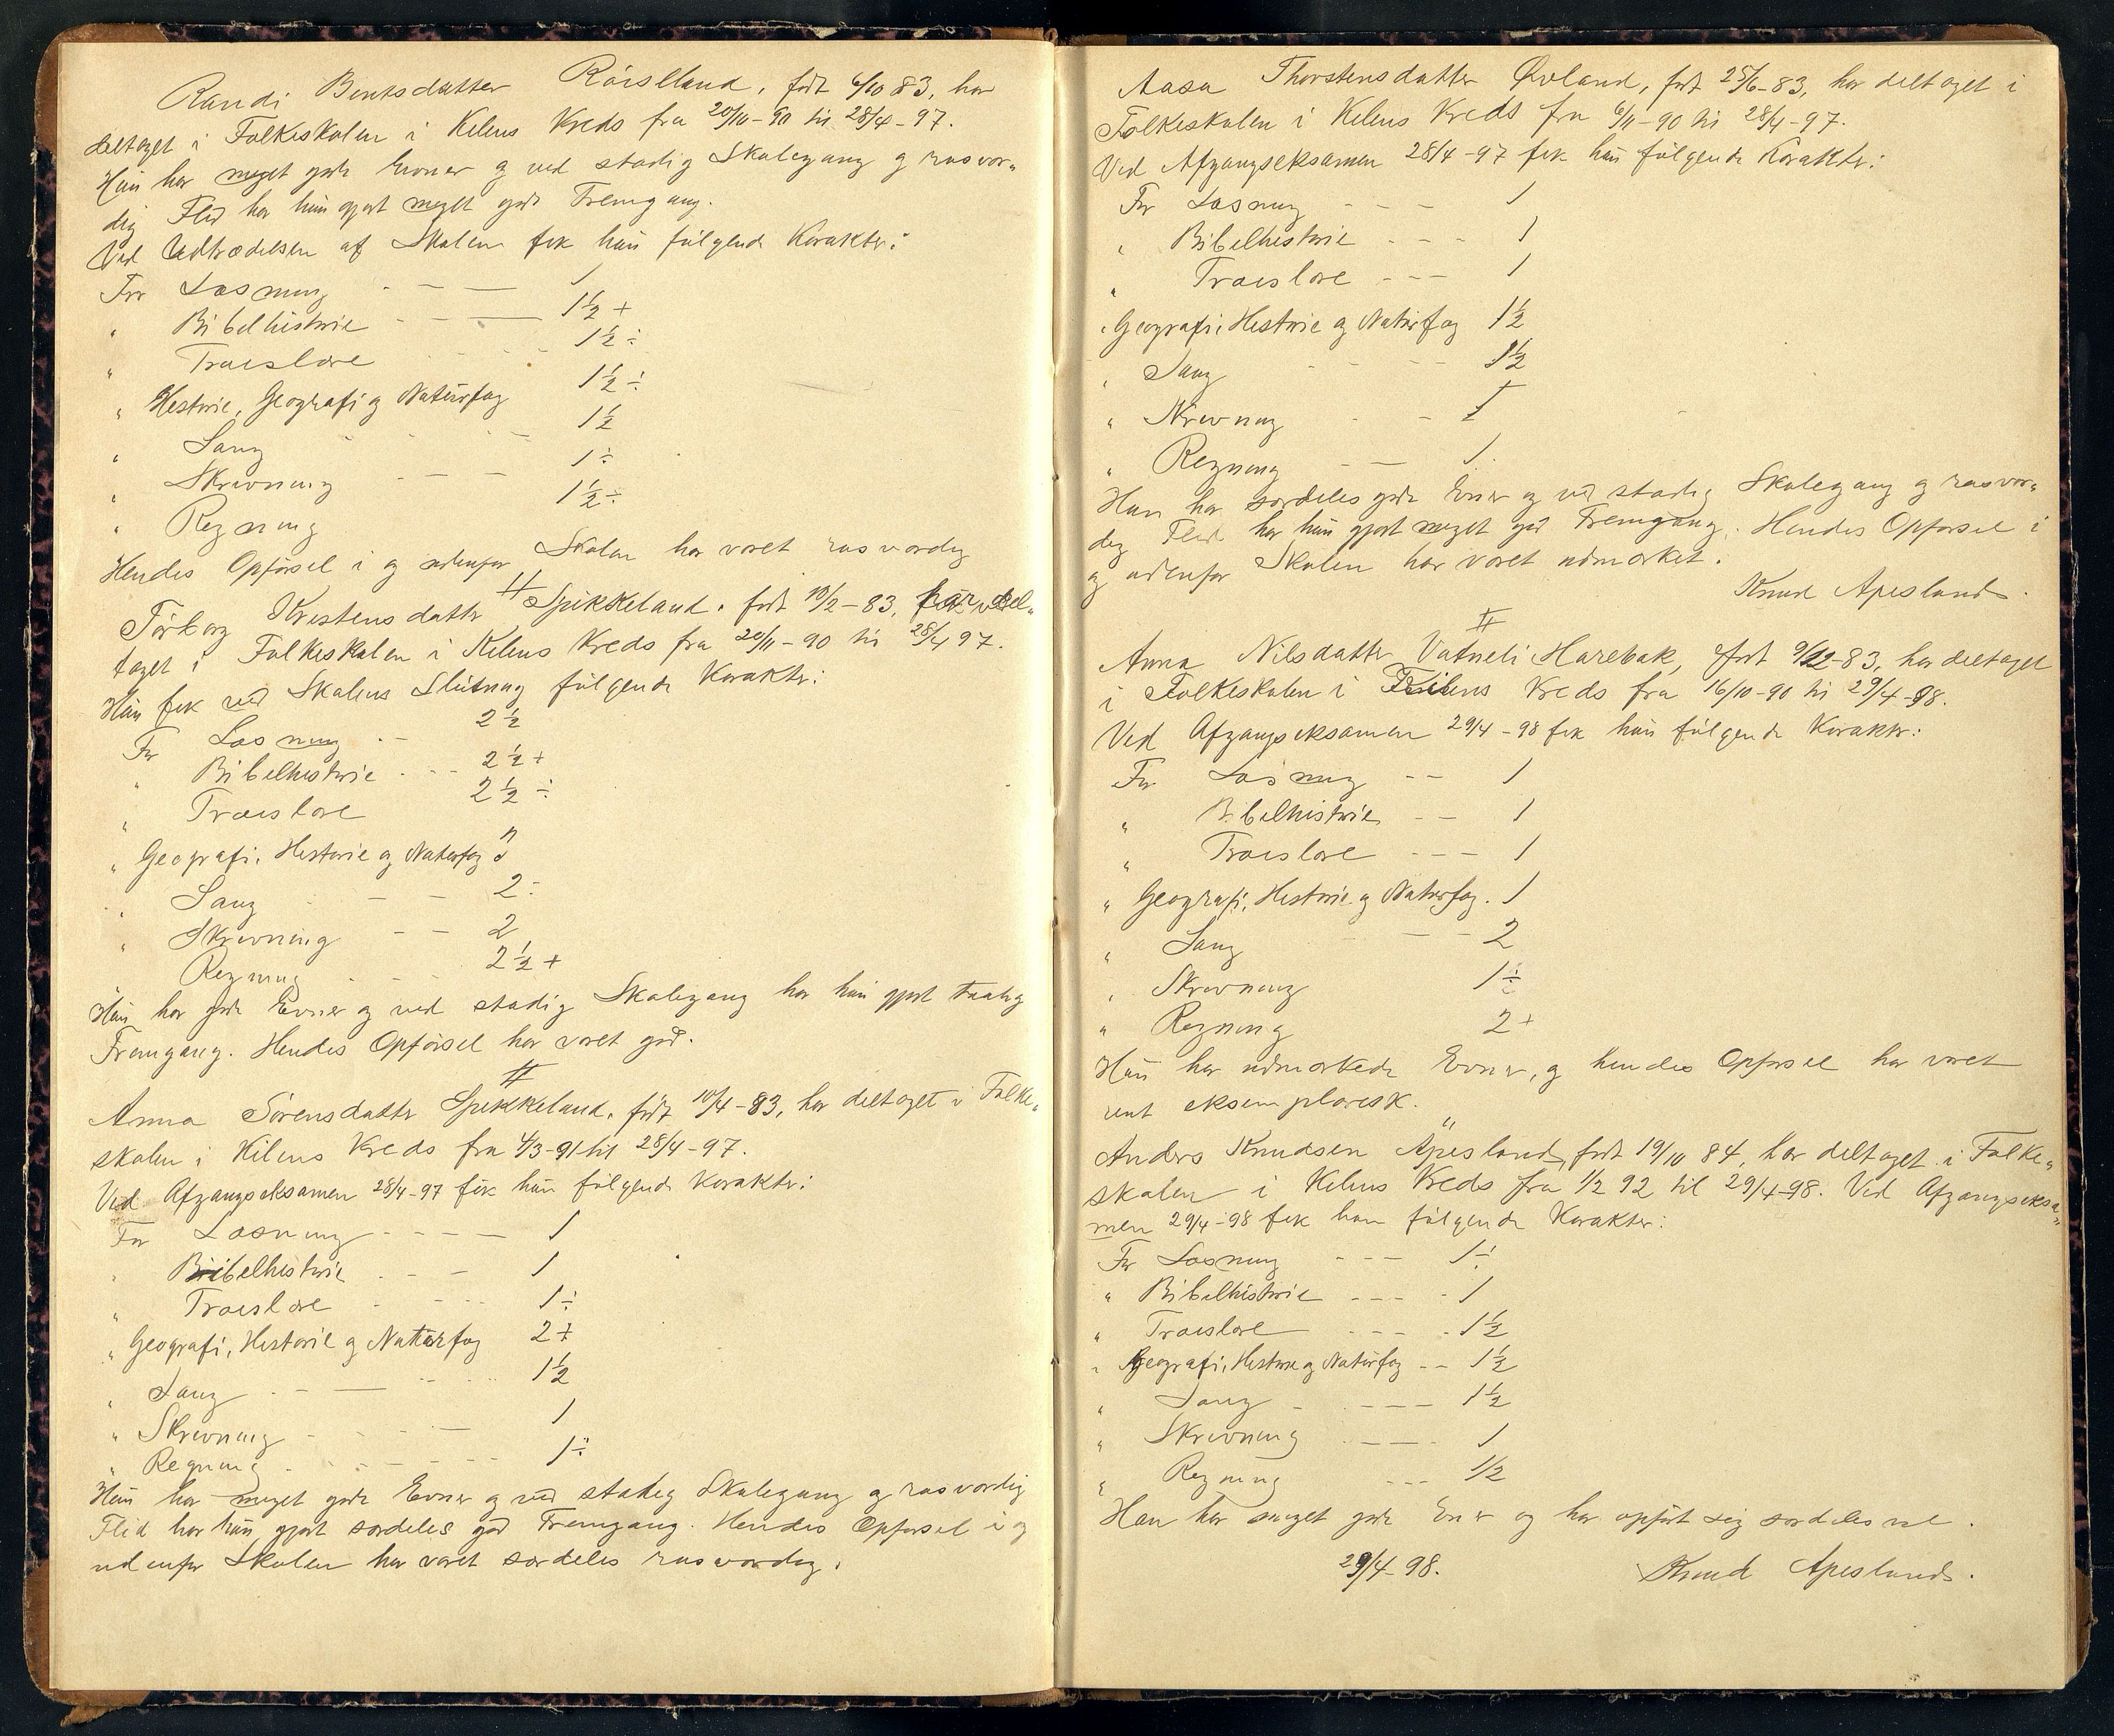 Randi Bentsdatter Røislland, født 6/10 83, har
deltaget i Folkeskolen i Kilens Kreds fra 20/10-90 til 28/4-97.
Hun har meget gode Evner og ved stadig Skolegang og rosvær„
dig Flid har hun gjort meget god Fremgang.
Ved Udtrædelsen af Skolen fik hun følgende Karakter:
For Læsning - - — 1
„ Bibelhistorie - - — 1½ +
„ Troeslære 1½ ÷
„ Historie, Geografi og Naturfag 1½ ÷
„ Sang 1½
„ Skrivning - - 1 ÷
„ Regning 1½ ÷
Hendes Opførsel i og udenfor Skolen har været rosværdig
〃
Torborg Kristensdatter Spikkeland, født 10/2-83, har del„
taget i Folkeskolen i Kilens Kreds fra 20/11-90 til 28/4 97.
Hun fik ved Skolens Slutning følgende Karakter:
For Læsning - - 2½
„ Bibelhistorie - - - 2½ +
„ Troeslære 2½ ÷
„ Geografi, Historie og Naturfag 3
„ Sang - - 2 ÷
„ Skrivning - - 2
Regning - - 2½ +
Hun har gode Evner og ved stadig Skolegang har hun gjort taalig
Fremgang. Hendes Opførsel har været god.
〃
Anna Sørensdatter Spikkeland, født 10/4-83, har deltaget i Folke„
skolen i Kilens Kreds fra 4/3-91 til 28/4-97.
Ved Afgangseksamen 28/4-97 fik hun følgende Karakter:
For Læsning - - - — 1
„ Bibelhistorie - - - 1
„ Troeslære - - - 1 ÷
„ Geografi, Historie og Naturfag 2 +
„ Sang - - — - - 1½
„ Skrivning - - - — 1
„ Regning - - - - 1 ÷
Hun har meget gode Evner og ved stadig Skolegang og rosværdig
Flid har hun gjort særdeles god Fremgang. Hendes Opførsel i og
udenfor Skolen har været særdeles rosværdig.
Aasa Thorstensdatter Øvland, født 25/6-83, har deltaget i
Folkeskolen i Kilens Kreds fra 6/11-90 til 28/4-97.
Ved Afgangseksamen 28/4-97 fik hun følgende Karakter:
For Læsning - - - 1
„ Bibelhistorie - - - 1
„ Troeslære - - - 1
„ Geografi, Historie og Naturfag 1½
„ Sang - - - 1½
„ Skrivning - - 1
„ Regning - - 1
Hun har særdeles gode Evner og ved stadig Skolegang og rosvær„
dig Flid har hun gjort meget god Fremgang. Hendes Opførsel i
og udenfor Skolen har været udmærket.
Knud Apesland.
〃
Anna Nilsdatter Vatneli Harebak, født 9/12-83, har deltaget
i Folkeskolen i Kilens Kreds fra 16/10-90 til 29/4-98.
Ved Afgangseksamen 29/4-98 fik hun følgende Karakter:
For Læsning - - 1
„ Bibelhistorie - - 1
„ Troeslære - - - 1
„ Geografi, Historie og Naturfag. 1
„ Sang - - - 2
„ Skrivning 1 ÷
„ Regning 2 +
Hun har udmærkede Evner, og hendes Opførsel har været
rent eksemplarisk.
〃
Anders Knudsen Apesland, født 19/10 84, har deltaget i Folke„
skolen i Kilens Kreds fra 1/2 92 til 29/4-98. Ved Afgangseksa„
men 29/4-98 fik han følgende Karakter:
For Læsning - - - 1 ÷
„ Bibelhistorie - - - - 1
„ Troeslære - - - - 1½
„ Geografi, Historie og Naturfag - - 1½
„ Sang - - - - 1½
„ Skrivning - - - 1
„ Regning - - - 1/2
Han har meget gode Evner og har opført sig særdeles vel.
29/4-98. Knud Apesland.